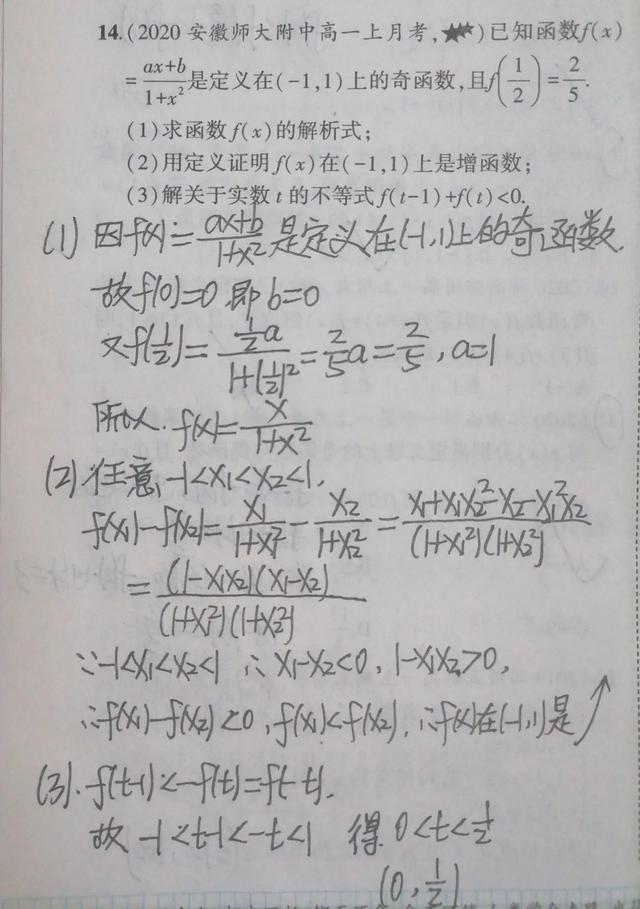 14.(2020安徽师大附中高一上月考,★★★)已知函数f(x)
=\frac{ax+b}{1+x²}是定义在(-1,1)上的奇函数,且f(\frac{1}{2})=\frac{2}{5}.
(1)求函数f(x)的解析式;
(2)用定义证明f(x)在(-1,1)上是增函数;
(3)解关于实数t的不等式f(t-1)+f(t)<0.
(1) 因f(x)=\frac{ax+b}{1+x²}是定义在(-1,1)上的奇函数.
故f(0)=0 即b=0
又f(\frac{1}{2})=\frac{\frac{1}{2}a}{1+(\frac{1}{2})²}=\frac{2}{5}a=\frac{2}{5},a=1
所以.f(x)=\frac{x}{1+x²}
(2)任意-1<x₁<x₂<1,
f(x₁)-f(x₂)=\frac{x₁}{1+x₁²}-\frac{x₂}{1+x₂²}=\frac{x₁+x₁x₂²-x₂-x₁²x₂}{(1+x₁²)(1+x₂²)}
=\frac{(1-x₁x₂)(x₁-x₂)}{(1+x₁²)(1+x₂²)}
∵-1<x₁<x₂<1 ∴x₁-x₂<0,1-x₁x₂>0,
∴f(x₁)-f(x₂)<0,f(x₁)<f(x₂),∴f(x)在(-1,1)是↗
(3).f(t-1)<-f(t)=f(-t).
故 -1<t-1<-t<1 得 0<t<\frac{1}{2}
(0,\frac{1}{2})